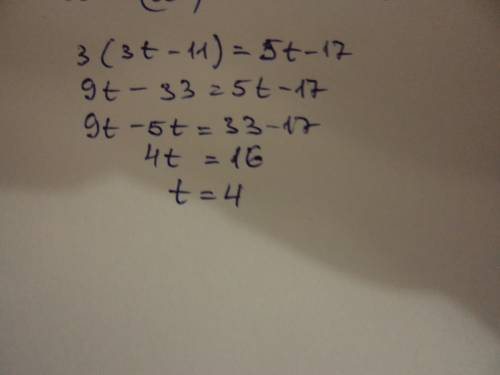 3(3t-11)=5t-17
9t-33=5t-17
9t-5t=33-17
4t=16
t=4